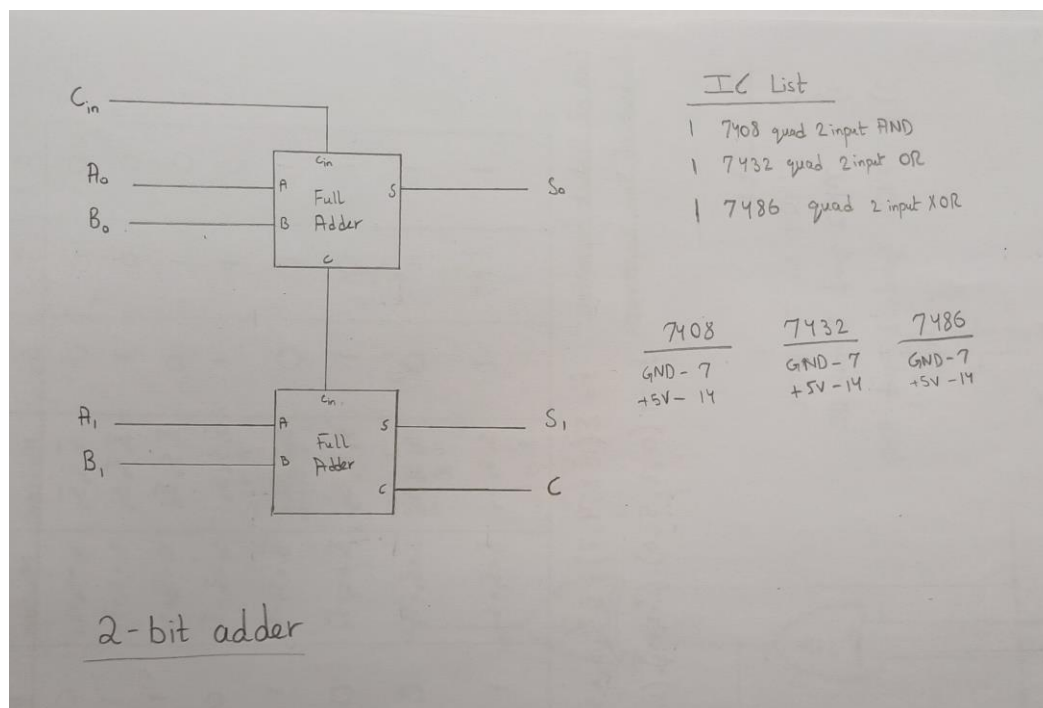 Cin
A₀
B₀
Cin
A
B
Full
Adder
S
C
S₀
A₁
B₁
Cin
A
B
Full
Adder
S
C
S₁
C
2-bit adder
IC List
1 7408 quad 2 input AND
1 7432 quad 2 input OR
1 7486 quad 2 input XOR
7408
GND - 7
+5V - 14
7432
GND - 7
+5V - 14
7486
GND - 7
+5V - 14